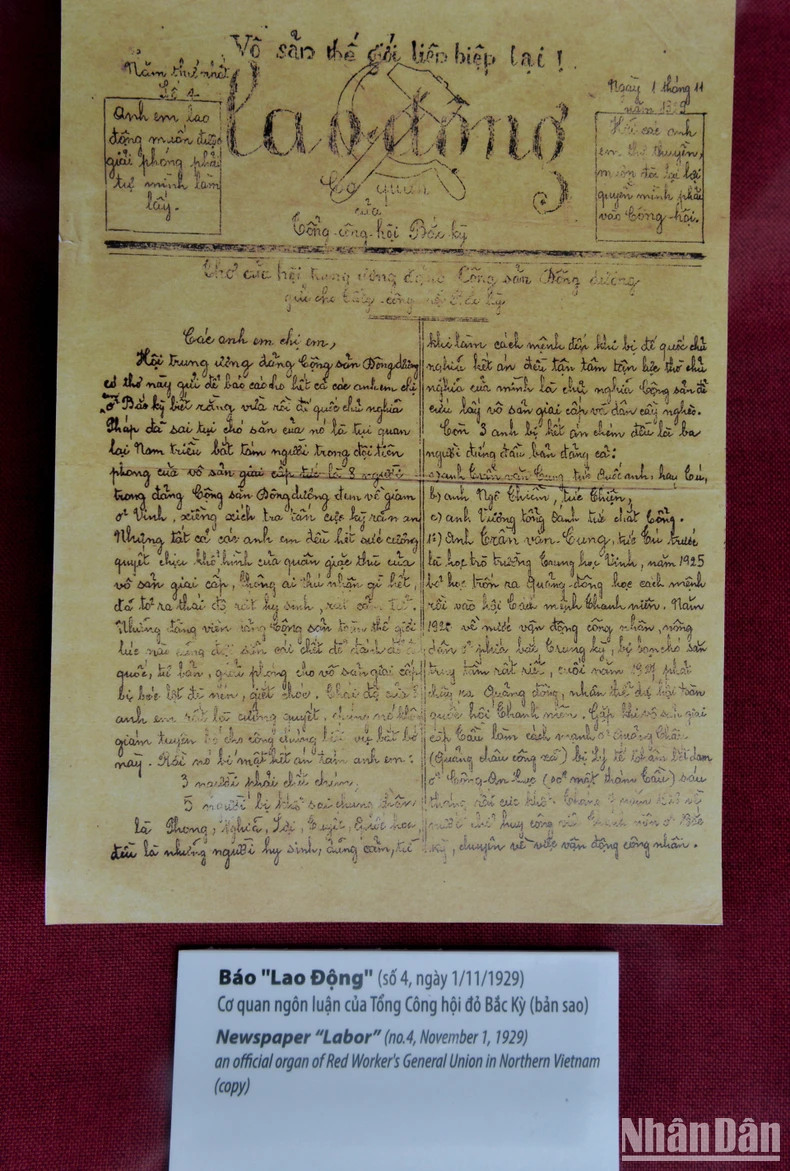 Vô sản thế giới liên hiệp lại!
Năm thứ nhất
Số 4
Anh em lao
động muốn được
giải phóng phải
tự mình làm
lấy.
lao động
Cơ quan
của
Tổng-công-hội Bắc kỳ
Ngày 1 tháng 11
năm 1929
Hỡi các anh
em thợ thuyền,
muốn đòi lại lợi
quyền mình phải
vào Công-hội.
Thơ của hội trung ương đảng Cộng sản Đông dương
gửi cho Tổng-công-hội Bắc kỳ
Các anh em chị em,
Hội trung ương đảng Cộng sản Đông dương
có thơ này gửi để báo cáo cho hết cả các anh em chị
ở Bắc kỳ biết rằng vừa rồi đế quốc chủ nghĩa
Pháp đã sai tụi chó săn của nó là tụi quan
lại Nam triều bắt tám người trong đội tiên
phong của vô sản giai cấp tức là 8 người
trong đảng Cộng sản Đông dương đem về giam
ở Vinh, xiềng xích tra tấn cực kỳ
Nhưng tất cả các anh em đều hết sức cương
quyết chịu khổ hình của quân giặc thù của
vô sản giai cấp, không ai thú nhận gì hết,
đã tỏ ra thái độ rất hy sinh, rất
Những đảng viên đảng Cộng sản toàn thế giới
lúc nào cũng sẵn cái chết để đánh đổ đế
quốc, tư bản, giải phóng cho vô sản giai cấp
bị bóc lột đè nén, giết chóc. Thái độ của
anh em rất là cương quyết, chúng nó không
giám tuyên bố cho công chúng biết việc bắt bớ
này. Rồi nó bí mật kết án tám anh em:
3 người phải chết chém,
5 người bị khổ sai chung thân
là Phong, Nghĩa, Lợi,
đều là những người hy sinh, dũng cảm, từ
khi làm cách mệnh đến khi bị đế quốc chủ
nghĩa kết án đều tận tâm tận lực thờ chủ
nghĩa của mình là chủ nghĩa Cộng sản để
cứu lấy vô sản giai cấp và dân cày nghèo.
Còn 3 anh bị kết án chém đều là ba
người đứng đầu bản đảng cả:
a) anh Trần văn Cung, tức Quốc anh, hay Cú,
b) anh Ngô Thiền, tức Thiện,
c) anh Vương tống Sánh tức Chắt Công.
1º) Anh Trần văn-Cung, tức Cú trước
là học trò trường Trung học Vinh, năm 1925
bỏ học trốn ra Quảng-đông học cách mệnh
rồi vào hội Cách mệnh Thanh niên. Năm
về nước vận động công nhân, nông
dân ở phía bắc Trung kỳ, bị bọn chó săn
truy tầm rất riết, cuối năm 1927 phải
chạy ra Quảng đông, nhân thể dự hội toàn
quốc hội Thanh niên. Gặp khi vô sản giai
cấp Tầu làm cách mệnh ở Quảng Châu
(Quảng châu công xã) bị Lý tế Thâm bắt đam
ở Công-An-Cục (sở mật thám Tầu) sáu
tháng rất cực khổ.
người chỉ huy công hội Thanh niên ở Bắc
kỳ, chuyên về việc vận động công nhân.
Báo "Lao Động" (số 4, ngày 1/11/1929)
Cơ quan ngôn luận của Tổng Công hội đỏ Bắc Kỳ (bản sao)
Newspaper “Labor” (no.4, November 1, 1929)
an official organ of Red Worker's General Union in Northern Vietnam
(copy)
NhânDân